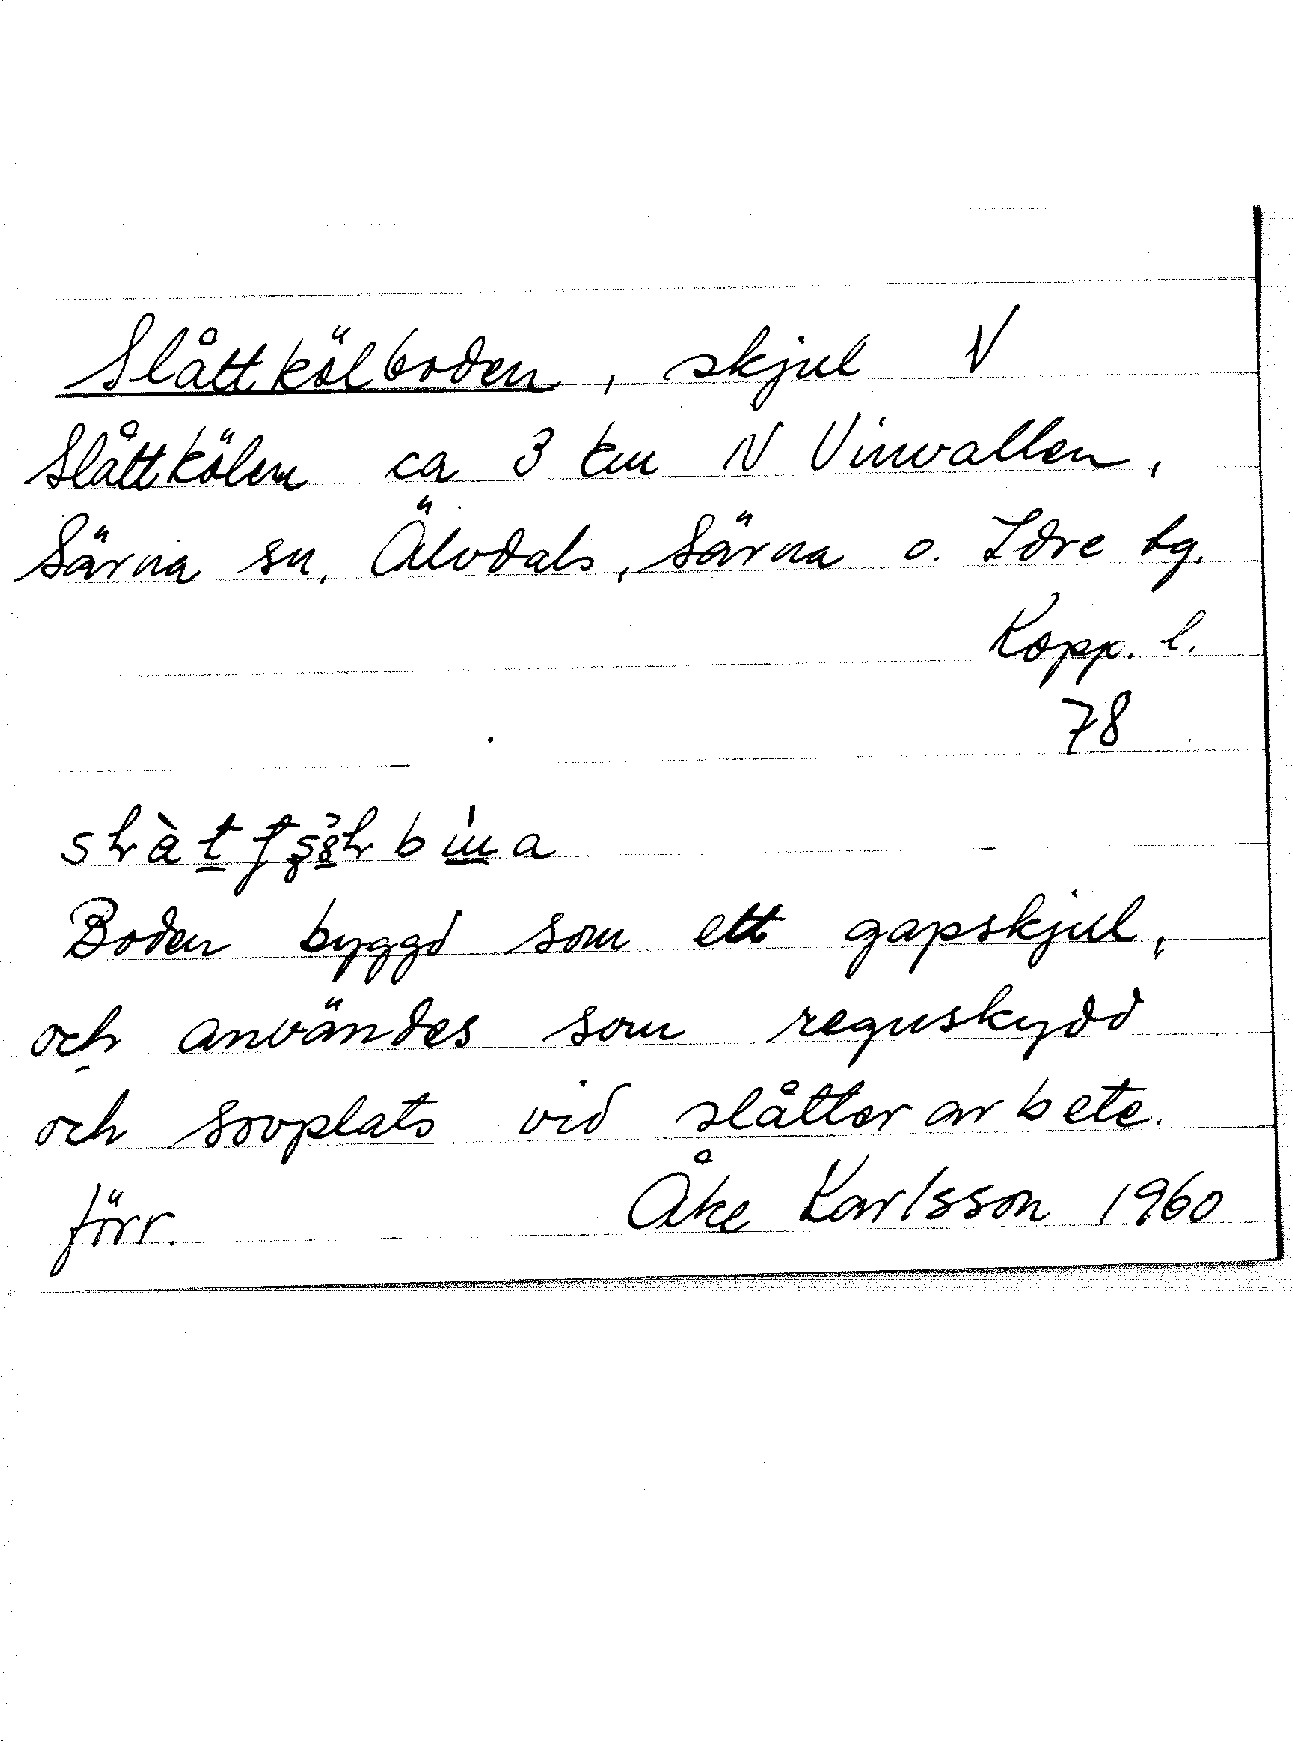 Slåttkölboden, skjul V
Slåttkölen ca 3 km N Vinvallen,
Särna sn, Älvdals, Särna o. Idre tg.
Kopp. l.
78
Boden byggd som ett gapskjul,
och användes som regnskydd
och sovplats vid slåtterarbete.
förr. Åke Karlsson 1960